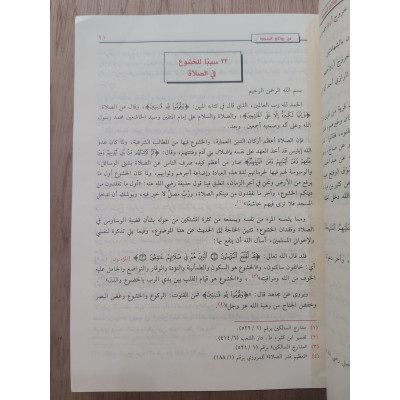 من روائع المنجد
٢١
٣٣ سببًا للخشوع
في الصلاة
بسم الله الرحمن الرحيم
الحمد لله رب العالمين، الذي قال في كتابه المبين: ﴿وَقُومُوا لِلَّهِ قَانِتِينَ﴾، وقال عن الصلاة:
﴿وَإِنَّهَا لَكَبِيرَةٌ إِلَّا عَلَى الْخَاشِعِينَ﴾، والصلاة والسلام على إمام المتقين وسيد الخاشعين محمد رسول
الله وعلى آله وصحبه أجمعين.
فإن الصلاة أعظم أركان الدين العملية، والخشوع فيها من المطالب الشرعية، ولما كان عدو
الله إبليس قد أخذ العهد على نفسه بإضلال بني آدم وفتنتهم، وقال: ﴿ثُمَّ لَآتِيَنَّهُم مِّن بَيْنِ أَيْدِيهِمْ وَمِنْ
خَلْفِهِمْ وَعَنْ أَيْمَانِهِمْ وَعَن شَمَائِلِهِمْ﴾ صار من أعظم كيده صرف الناس عن الصلاة بشتى الوسائل،
والوسوسة لهم فيها لحرمانهم لذة هذه العبادة وإضاعة أجرهم وثوابهم، ولما كان الخشوع أول ما
يرفع من الأرض ونحن في آخر الزمان، انطبق فينا قول حذيفة رضي الله عنه: «أول ما تفقدون من
دينكم الخشوع، وآخر ما تفقدون من دينكم الصلاة، ورُبّ مصلٍّ لا خير فيه، ويوشك أن تدخل
المسجد فلا ترى فيهم خاشعًا»(١).
ومما يلمسه المرء من نفسه ويسمعه من كثرة المشتكين من حوله بشأن قضية الوساوس في
الصلاة وفقدان الخشوع؛ تتبين الحاجة إلى الحديث عن هذا الموضوع، وفيما يلي تذكرة لنفسي
ولإخواني المسلمين، أسأل الله أن ينفع بها.
فقد قال الله تعالى: ﴿قَدْ أَفْلَحَ الْمُؤْمِنُونَ الَّذِينَ هُمْ فِي صَلَاتِهِمْ خَاشِعُونَ﴾
أي: خائفون ساكنون، و«الخشوع هو السكون والطمأنينة والتؤدة والوقار والتواضع والحامل عليه
الخوف من الله ومراقبته»(٢)، و«الخشوع هو قيام القلب بين يدي الرب بالخضوع والذل»(٣).
ويروى عن مجاهد قال: «﴿وَقُومُوا لِلَّهِ قَانِتِينَ﴾: فمن القنوت: الركوع والخشوع وغض البصر
وخفض الجناح من رهبة الله عز وجل»(٤).
(١) مدارج السالكين
(٢) تفسير ابن كثير ط: دار الشعب
(٣) مدارج السالكين
(٤) تعظيم قدر الصلاة للمروزي برقم (١٨٨/١).